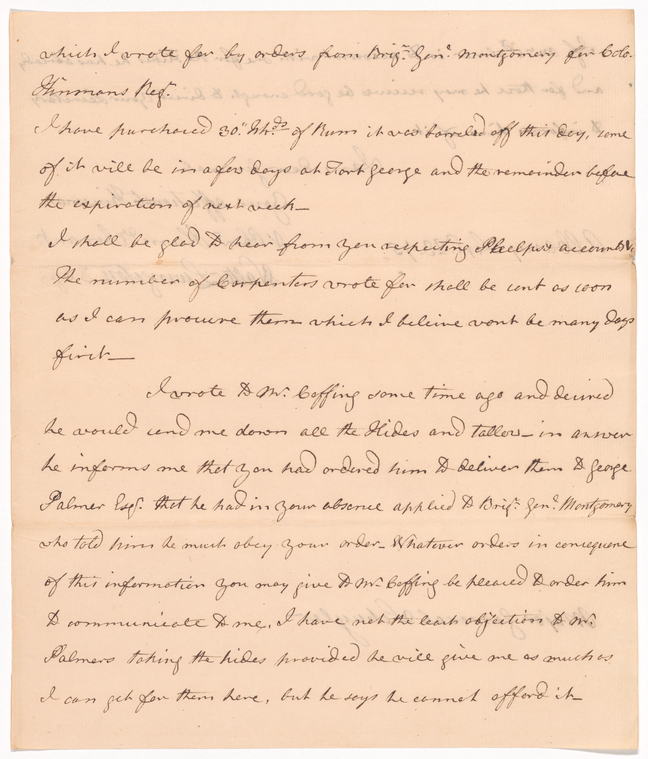 which I wrote for by orders from Brigr. Genl. Montgomery for Colo.
Hinmans Regt.
I have purchased 30 Hhds of Rum it was barreled off this day, some
of it will be in a few days at Fort George and the remainder before
the expiration of next week—
I shall be glad to hear from you respecting Phelps's accounts
The number of Carpenters wrote for shall be sent as soon
as I can procure them which I believe wont be many days
first—
I wrote to Mr. Coffing some time ago and desired
he would send me down all the Hides and tallow— in answer
he informs me that you had ordered him to deliver them to George
Palmer Esqr. that he had in your absence applied to Brigr. Genl. Montgomery
who told him he must obey your order— Whatever orders in consequence
of this information you may give to Mr. Coffing be pleased to order him
to communicate to me, I have not the least objection to Mr.
Palmers taking the hides provided he will give me as much as
I can get for them here, but he says he cannot afford it—